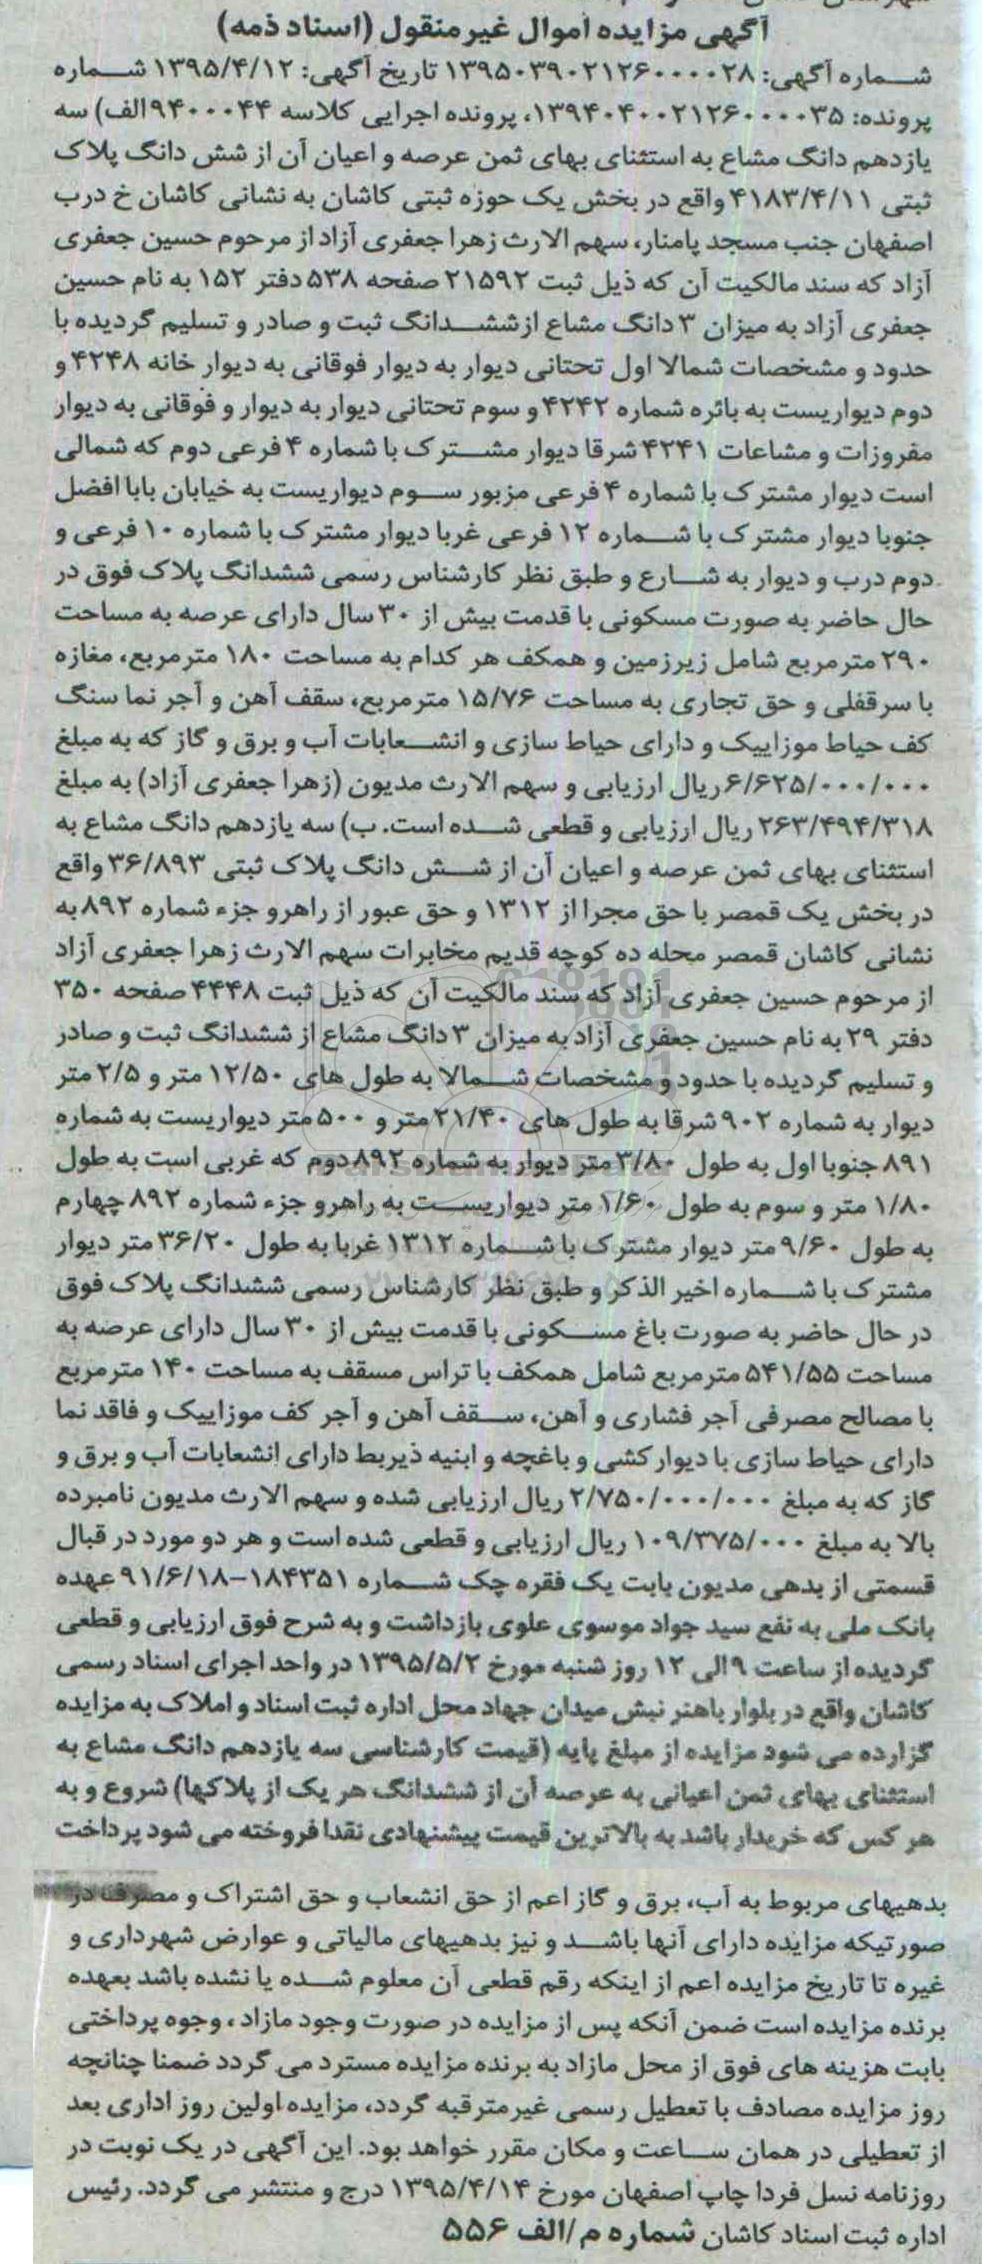 آگهی مزایده اموال غیرمنقول (اسناد ذمه)
شماره آگهی: ۱۳۹۵۰۳۹۰۲۱۲۶۰۰۰۰۲۸ تاریخ آگهی: ۱۳۹۵/۴/۱۲ شماره
پرونده: ۱۳۹۴۰۴۰۰۲۱۲۶۰۰۰۰۳۵، پرونده اجرایی کلاسه ۹۴۰۰۰۴۴ الف) سه
یازدهم دانگ مشاع به استثنای بهای ثمن عرصه و اعیان آن از شش دانگ پلاک
ثبتی ۴۱۸۳/۴/۱۱ واقع در بخش یک حوزه ثبتی کاشان به نشانی کاشان خ درب
اصفهان جنب مسجد پامنار، سهم الارث زهرا جعفری آزاد از مرحوم حسین جعفری
آزاد که سند مالکیت آن که ذیل ثبت ۲۱۵۹۲ صفحه ۵۳۸ دفتر ۱۵۲ به نام حسین
جعفری آزاد به میزان ۳ دانگ مشاع از ششدانگ ثبت و صادر و تسلیم گردیده با
حدود و مشخصات شمالا اول تحتانی دیوار به دیوار فوقانی به دیوار خانه ۴۲۴۸ و
دوم دیواریست به بائره شماره ۴۲۴۲ و سوم تحتانی دیوار به دیوار و فوقانی به دیوار
مفروزات و مشاعات ۴۲۴۱ شرقا دیوار مشترک با شماره ۴ فرعی دوم که شمالی
است دیوار مشترک با شماره ۴ فرعی مزبور سوم دیواریست به خیابان بابا افضل
جنوبا دیوار مشترک با شماره ۱۲ فرعی غربا دیوار مشترک با شماره ۱۰ فرعی و
دوم درب و دیوار به شارع و طبق نظر کارشناس رسمی ششدانگ پلاک فوق در
حال حاضر به صورت مسکونی با قدمت بیش از ۳۰ سال دارای عرصه به مساحت
۲۹۰ مترمربع شامل زیرزمین و همکف هر کدام به مساحت ۱۸۰ مترمربع، مغازه
با سرقفلی و حق تجاری به مساحت ۱۵/۷۶ مترمربع، سقف آهن و آجر نما سنگ
کف حیاط موزاییک و دارای حیاط سازی و انشعابات آب و برق و گاز که به مبلغ
۶/۶۲۵/۰۰۰/۰۰۰ ریال ارزیابی و سهم الارث مدیون (زهرا جعفری آزاد) به مبلغ
۲۶۳/۴۹۴/۳۱۸ ریال ارزیابی و قطعی شده است. ب) سه یازدهم دانگ مشاع به
استثنای بهای ثمن عرصه و اعیان آن از شش دانگ پلاک ثبتی ۳۶/۸۹۳ واقع
در بخش یک قمصر با حق مجرا از ۱۳۱۲ و حق عبور از راهرو جزء شماره ۸۹۲ به
نشانی کاشان قمصر محله ده کوچه قدیم مخابرات سهم الارث زهرا جعفری آزاد
از مرحوم حسین جعفری آزاد که سند مالکیت آن که ذیل ثبت ۴۴۴۸ صفحه ۳۵۰
دفتر ۲۹ به نام حسین جعفری آزاد به میزان ۳ دانگ مشاع از ششدانگ ثبت و صادر
و تسلیم گردیده با حدود و مشخصات شمالا به طول های ۱۲/۵۰ متر و ۲/۵ متر
دیوار به شماره ۹۰۲ شرقا به طول های ۲۱/۴۰ متر و ۵۰۰ متر دیواریست به شماره
۸۹۱ جنوبا اول به طول ۳/۸۰ متر دیوار به شماره ۸۹۲ دوم که غربی است به طول
۱/۸۰ متر و سوم به طول ۱/۶۰ متر دیواریست به راهرو جزء شماره ۸۹۲ چهارم
به طول ۹/۶۰ متر دیوار مشترک با شماره ۱۳۱۲ غربا به طول ۳۶/۲۰ متر دیوار
مشترک با شماره اخیر الذکر و طبق نظر کارشناس رسمی ششدانگ پلاک فوق
در حال حاضر به صورت باغ مسکونی با قدمت بیش از ۳۰ سال دارای عرصه به
مساحت ۵۴۱/۵۵ مترمربع شامل همکف با تراس مسقف به مساحت ۱۴۰ مترمربع
با مصالح مصرفی آجر فشاری و آهن، سقف آهن و آجر کف موزاییک و فاقد نما
دارای حیاط سازی با دیوار کشی و باغچه و ابنیه ذیربط دارای انشعابات آب و برق و
گاز که به مبلغ ۲/۷۵۰/۰۰۰/۰۰۰ ریال ارزیابی شده و سهم الارث مدیون نامبرده
بالا به مبلغ ۱۰۹/۳۷۵/۰۰۰ ریال ارزیابی و قطعی شده است و هر دو مورد در قبال
قسمتی از بدهی مدیون بابت یک فقره چک شماره ۱۸۴۳۵۱-۹۱/۶/۱۸ عهده
بانک ملی به نفع سید جواد موسوی علوی بازداشت و به شرح فوق ارزیابی و قطعی
گردیده از ساعت ۹ الی ۱۲ روز شنبه مورخ ۱۳۹۵/۵/۲ در واحد اجرای اسناد رسمی
کاشان واقع در بلوار باهنر نبش میدان جهاد محل اداره ثبت اسناد و املاک به مزایده
گزارده می شود مزایده از مبلغ پایه (قیمت کارشناسی سه یازدهم دانگ مشاع به
استثنای بهای ثمن اعیانی به عرصه آن از ششدانگ هر یک از پلاکها) شروع و به
هر کس که خریدار باشد به بالاترین قیمت پیشنهادی نقدا فروخته می شود پرداخت
بدهیهای مربوط به آب، برق و گاز اعم از حق انشعاب و حق اشتراک و مصرف در
صورتیکه مزایده دارای آنها باشد و نیز بدهیهای مالیاتی و عوارض شهرداری و
غیره تا تاریخ مزایده اعم از اینکه رقم قطعی آن معلوم شده یا نشده باشد بعهده
برنده مزایده است ضمن آنکه پس از مزایده در صورت وجود مازاد، وجوه پرداختی
بابت هزینه های فوق از محل مازاد به برنده مزایده مسترد می گردد ضمنا چنانچه
روز مزایده مصادف با تعطیل رسمی غیرمترقبه گردد، مزایده اولین روز اداری بعد
از تعطیلی در همان ساعت و مکان مقرر خواهد بود. این آگهی در یک نوبت در
روزنامه نسل فردا چاپ اصفهان مورخ ۱۳۹۵/۴/۱۴ درج و منتشر می گردد. رئیس
اداره ثبت اسناد کاشان شماره م/الف ۵۵۶